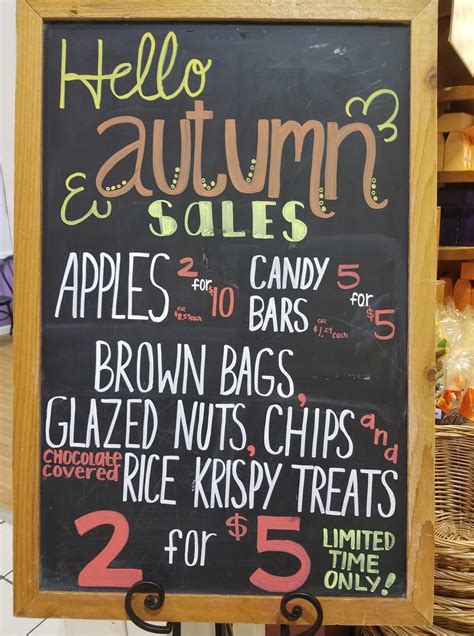 Hello
autumn
SALES
APPLES 2 for $10
OR $8.59 each
CANDY BARS 5 for $5
OR $1.29 each
BROWN BAGS,
GLAZED NUTS, CHIPS and
CHOCOLATE covered RICE KRISPY TREATS
2 for $5
LIMITED
TIME
ONLY!